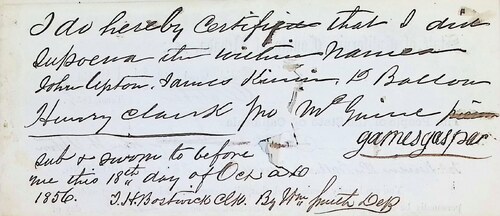 I do hereby Certified that I did
supoena the within Names
John Upton. James D Ballow
Henry Clark Jno McGuire
James gaspar
sub & sworn to before
me this 18th day of Oct AD
1856. J.H. Bostwick Clk. By Wm Smith Dep